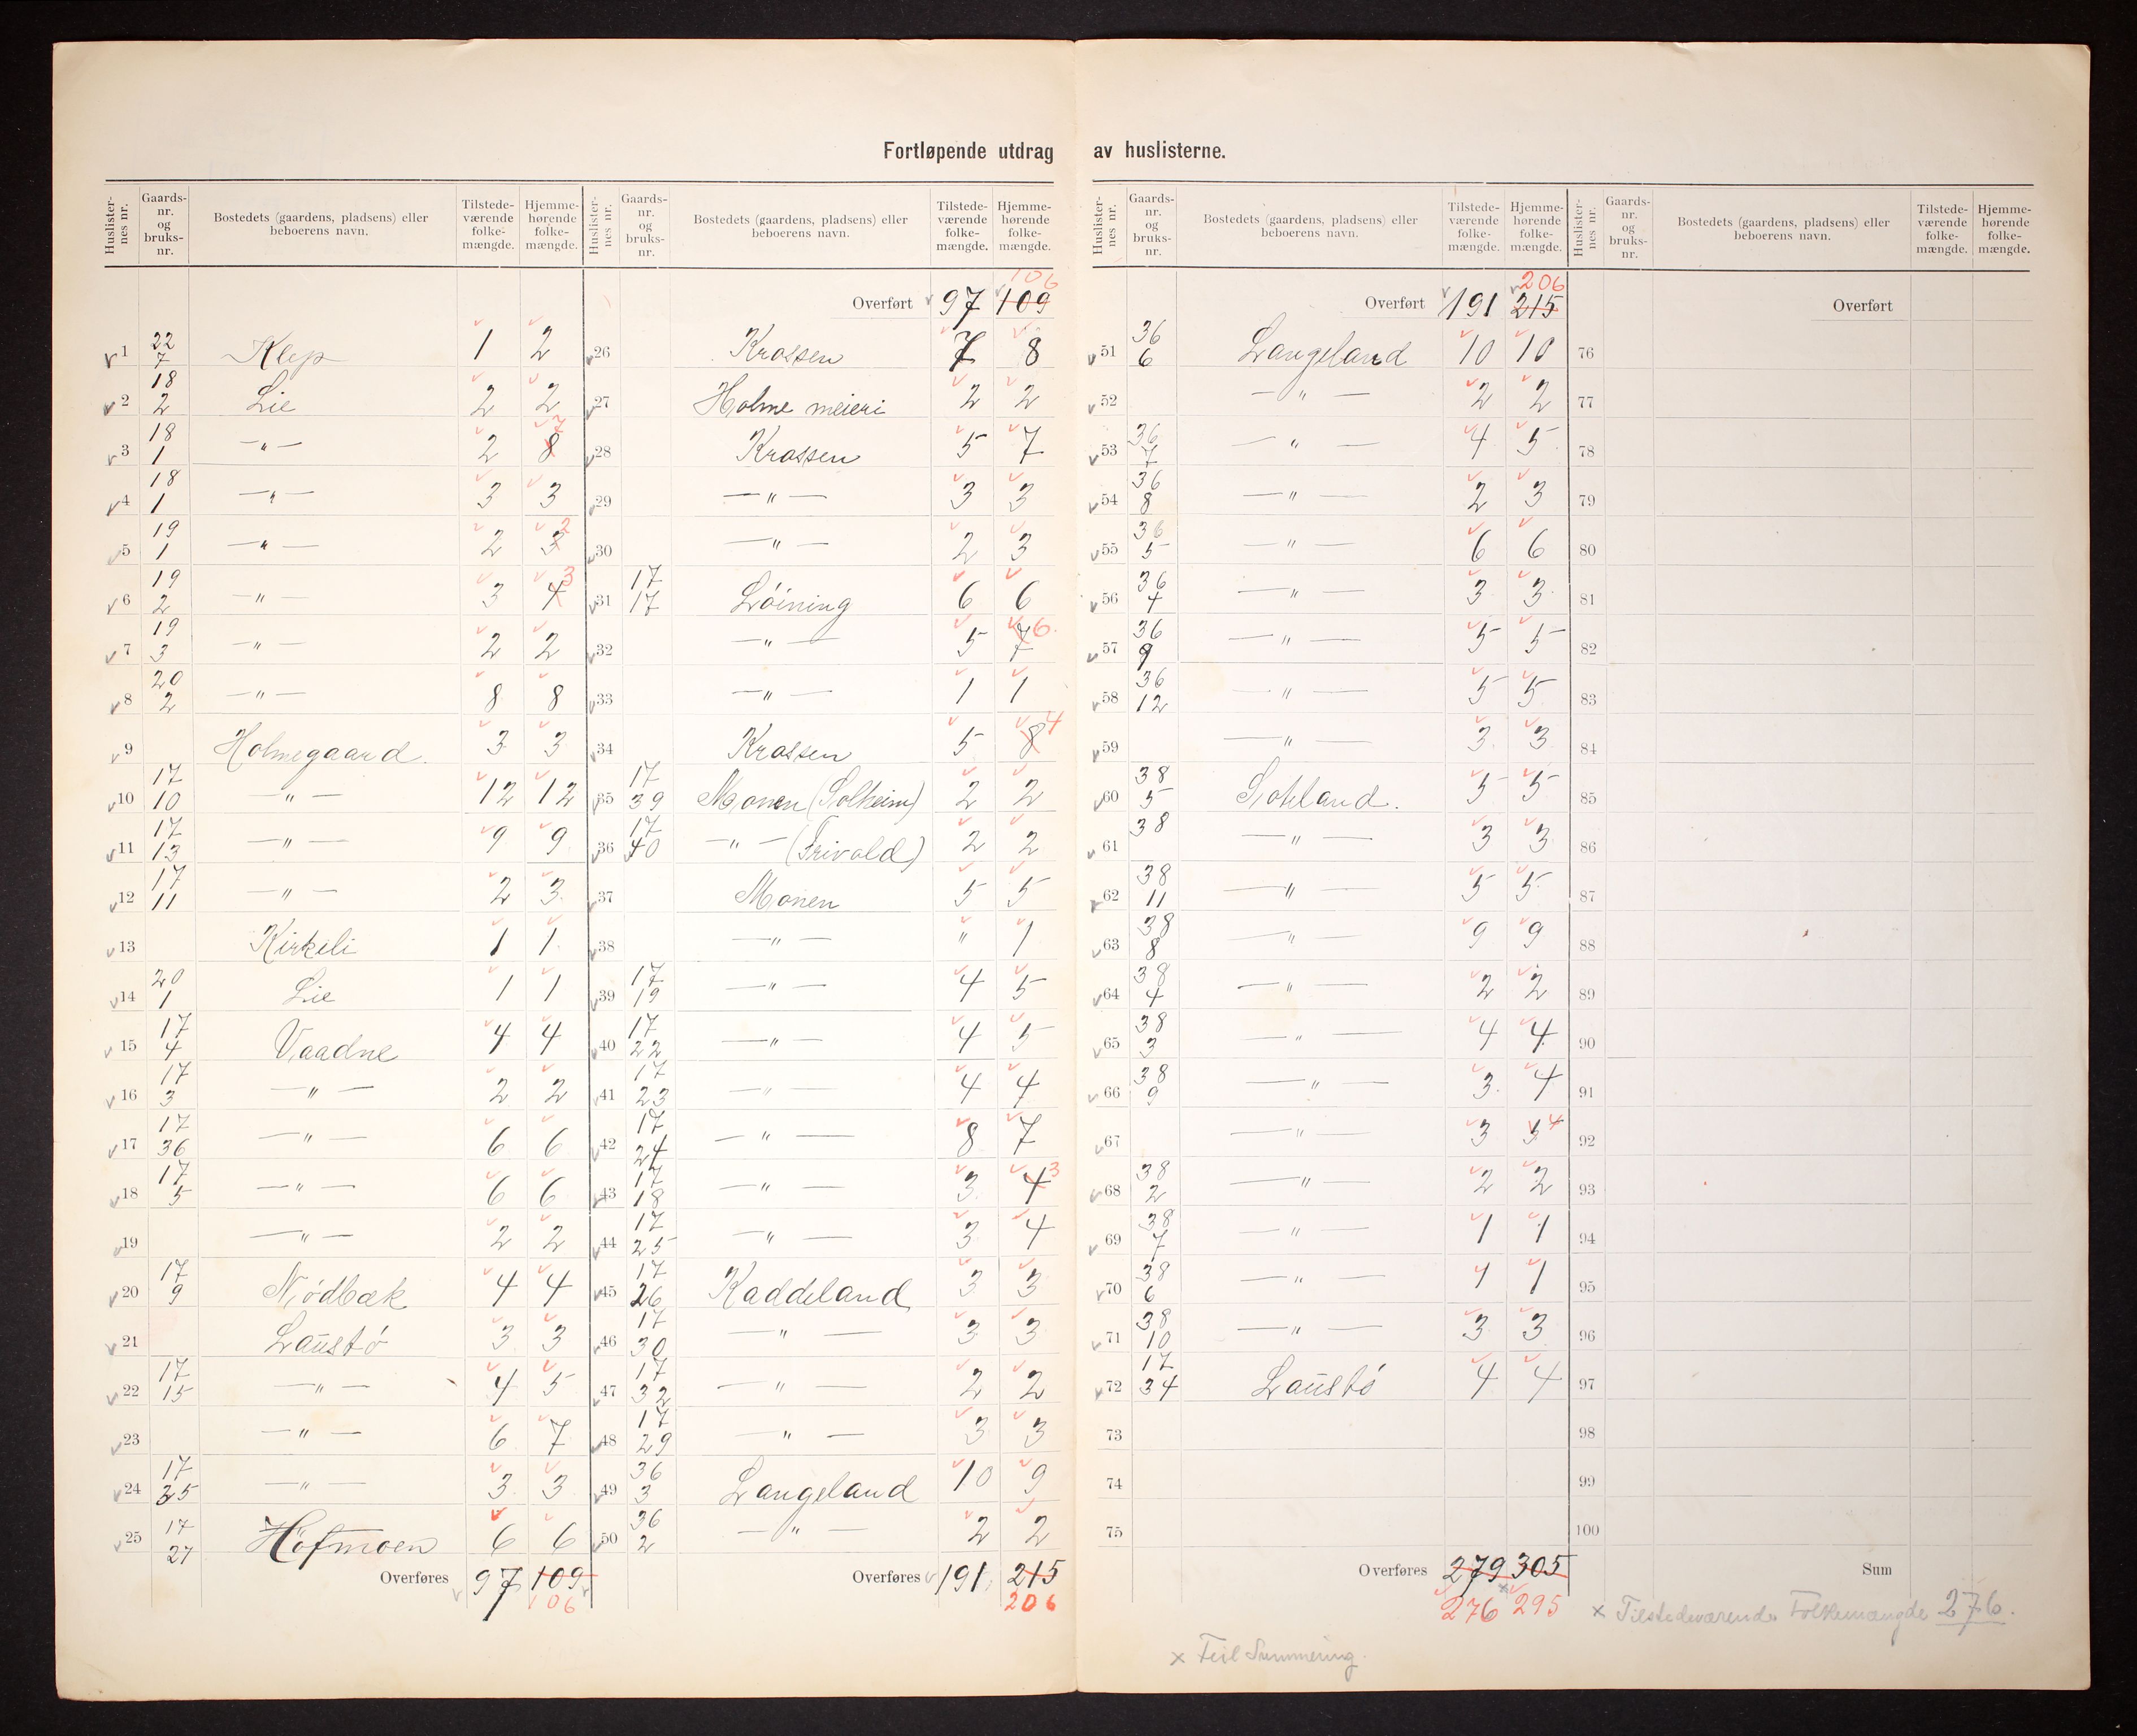 Fortløpende utdrag av huslisterne.
Huslisternes nr. Gaardsnr. og bruksnr. Bostedets (gaardens, pladsens) eller beboerens navn. Tilstedeværende folkemængde. Hjemmehørende folkemængde.
1 22 7 Klep 1 2
2 18 2 Lie 2 2
3 18 1 —"— 2 8 7
4 18 1 —"— 3 3
5 19 1 —"— 2 3 2
6 19 2 —"— 3 4 3
7 19 3 —"— 2 2
8 20 2 —"— 8 8
9 Holmegaard. 3 3
10 17 10 —"— 12 12
11 17 13 —"— 9 9
12 17 11 —"— 2 3
13 Kirkeli 1 1
14 20 1 Lie 1 1
15 17 4 Vaadne 4 4
16 17 3 —"— 2 2
17 17 36 —"— 6 6
18 17 5 —"— 6 6
19 —"— 2 2
20 17 9 Nødbæk 4 4
21 Laustø 3 3
22 17 15 —"— 4 5
23 —"— 6 7
24 17 35 —"— 3 3
25 17 27 Hofmoen 6 6
Overføres 97 109
106
Huslisternes nr. Gaardsnr. og bruksnr. Bostedets (gaardens, pladsens) eller beboerens navn. Tilstedeværende folkemængde. Hjemmehørende folkemængde.
106
Overført 97 109
26 Krossen 7 8
27 Holme meieri 2 2
28 Krossen 5 7
29 —"— 3 3
30 —"— 2 3
31 17 17 Løining 6 6
32 —"— 5 7 6.
33 —"— 1 1
34 Krossen 5 8 4
35 17 39 Monen (Solheim) 2 2
36 17 40 —"— (Frivold) 2 2
37 Monen 5 5
38 —"— " 1
39 17 19 —"— 4 5
40 17 22 —"— 4 5
41 17 23 —"— 4 4
42 17 24 —"— 8 7
43 17 18 —"— 3 4 3
44 17 25 —"— 3 4
45 17 26 Kaddeland 3 3
46 17 30 —"— 3 3
47 17 32 —"— 2 2
48 17 29 —"— 3 3
49 36 3 Langeland 10 9
50 36 2 —"— 2 2
Overføres 191 215
206
Huslisternes nr. Gaardsnr. og bruksnr. Bostedets (gaardens, pladsens) eller beboerens navn. Tilstedeværende folkemængde. Hjemmehørende folkemængde.
206
Overført 191 215
51 36 6 Langeland 10 10
52 —"— 2 2
53 36 7 —"— 4 5
54 36 8 —"— 2 3
55 36 5 —"— 6 6
56 36 4 —"— 3 3
57 36 9 —"— 5 5
58 36 12 —"— 5 5
59 —"— 3 3
60 38 5 Sokland. 5 5
61 38 —"— 3 3
62 38 11 —"— 5 5
63 38 8 —"— 9 9
64 38 4 —"— 2 2
65 38 3 —"— 4 4
66 38 9 —"— 3 4
67 —"— 3 3 4
68 38 2 —"— 2 2
69 38 7 —"— 1 1
70 38 6 —"— 1 1
71 38 10 —"— 3 3
72 17 34 Laustø 4 4
73
74
75
Overføres 279 305
276 × 295
× Feil Summering.
Huslisternes nr. Gaardsnr. og bruksnr. Bostedets (gaardens, pladsens) eller beboerens navn. Tilstedeværende folkemængde. Hjemmehørende folkemængde.
Overført
76
77
78
79
80
81
82
83
84
85
86
87
88
89
90
91
92
93
94
95
96
97
98
99
100
Sum
× Tilstedeværende Folkemængde 276.